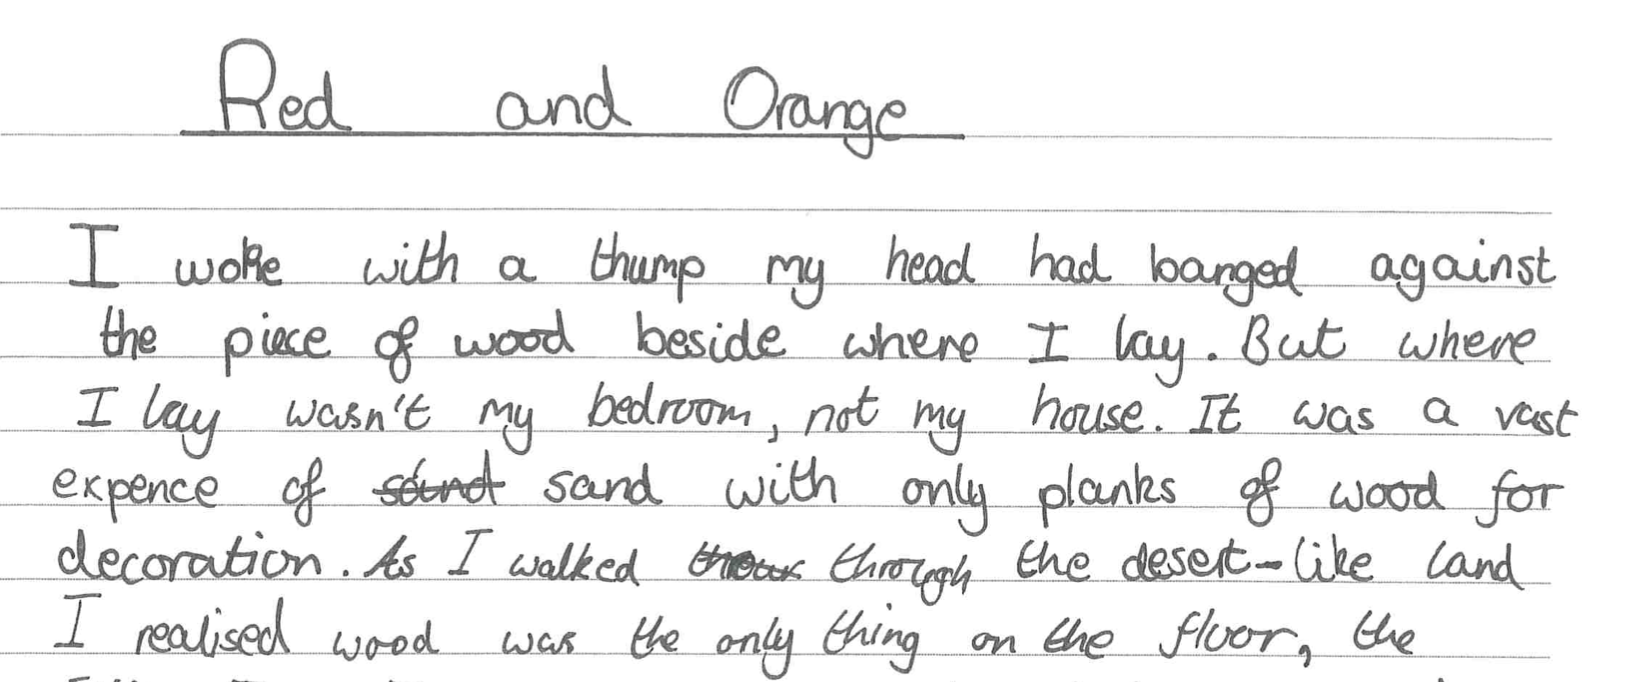 Red and Orange
I woke with a thump my head had banged against
the piece of wood beside where I lay. But where
I lay wasn't my bedroom, not my house. It was a vast
expence of sand with only planks of wood for
decoration. As I walked through the desert-like land
I realised wood was the only thing on the floor, the